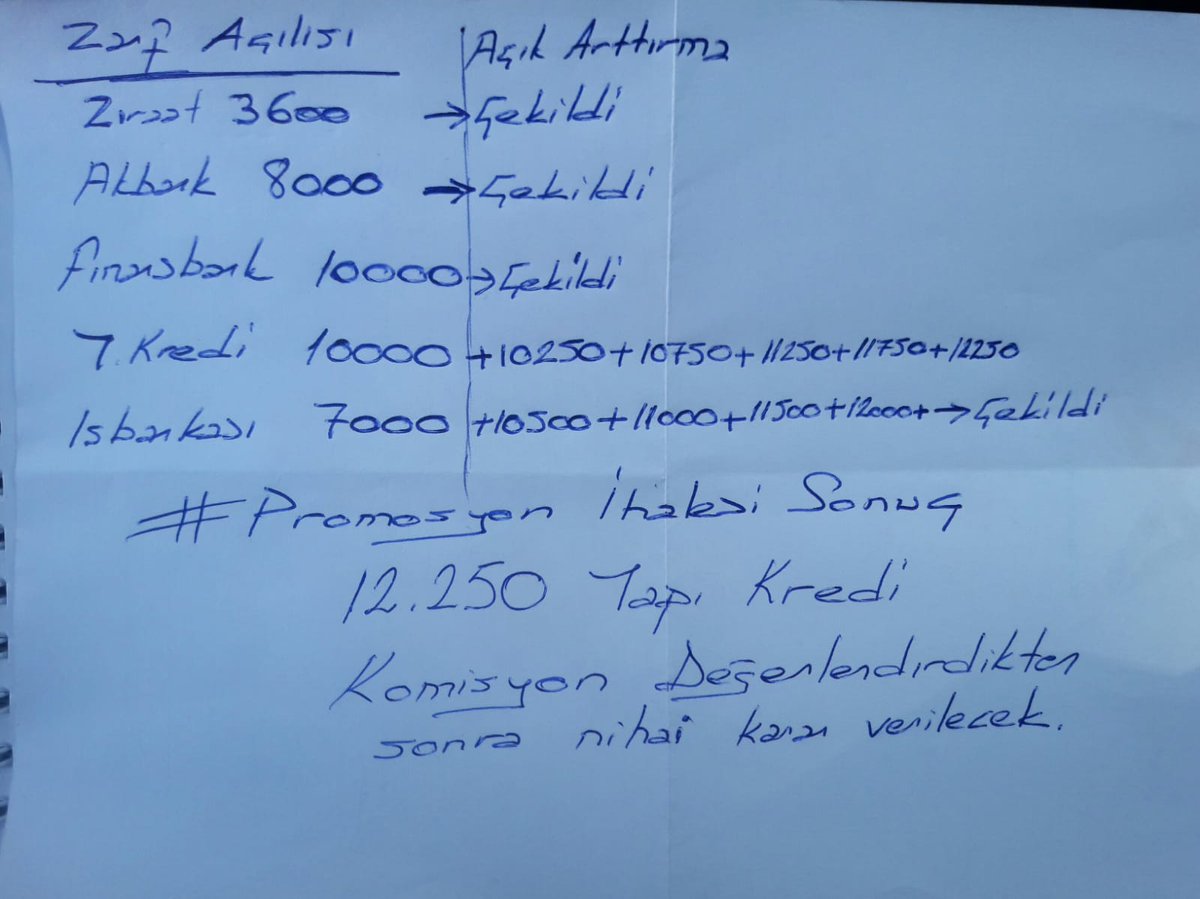 Zarf Açılısı | Açık Arttırma
Ziraat 3600 → Çekildi
Akbank 8000 → Çekildi
Finansbank 10000 → Çekildi
Y.Kredi 10000 +10250+10750+11250+11750+12250
Isbankası 7000 +10500+11000+11500+12000+ → Çekildi
#Promosyon İhalesi Sonuç
12.250 Yapı Kredi
Komisyon Değerlendirdikten
sonra nihai karar verilecek.